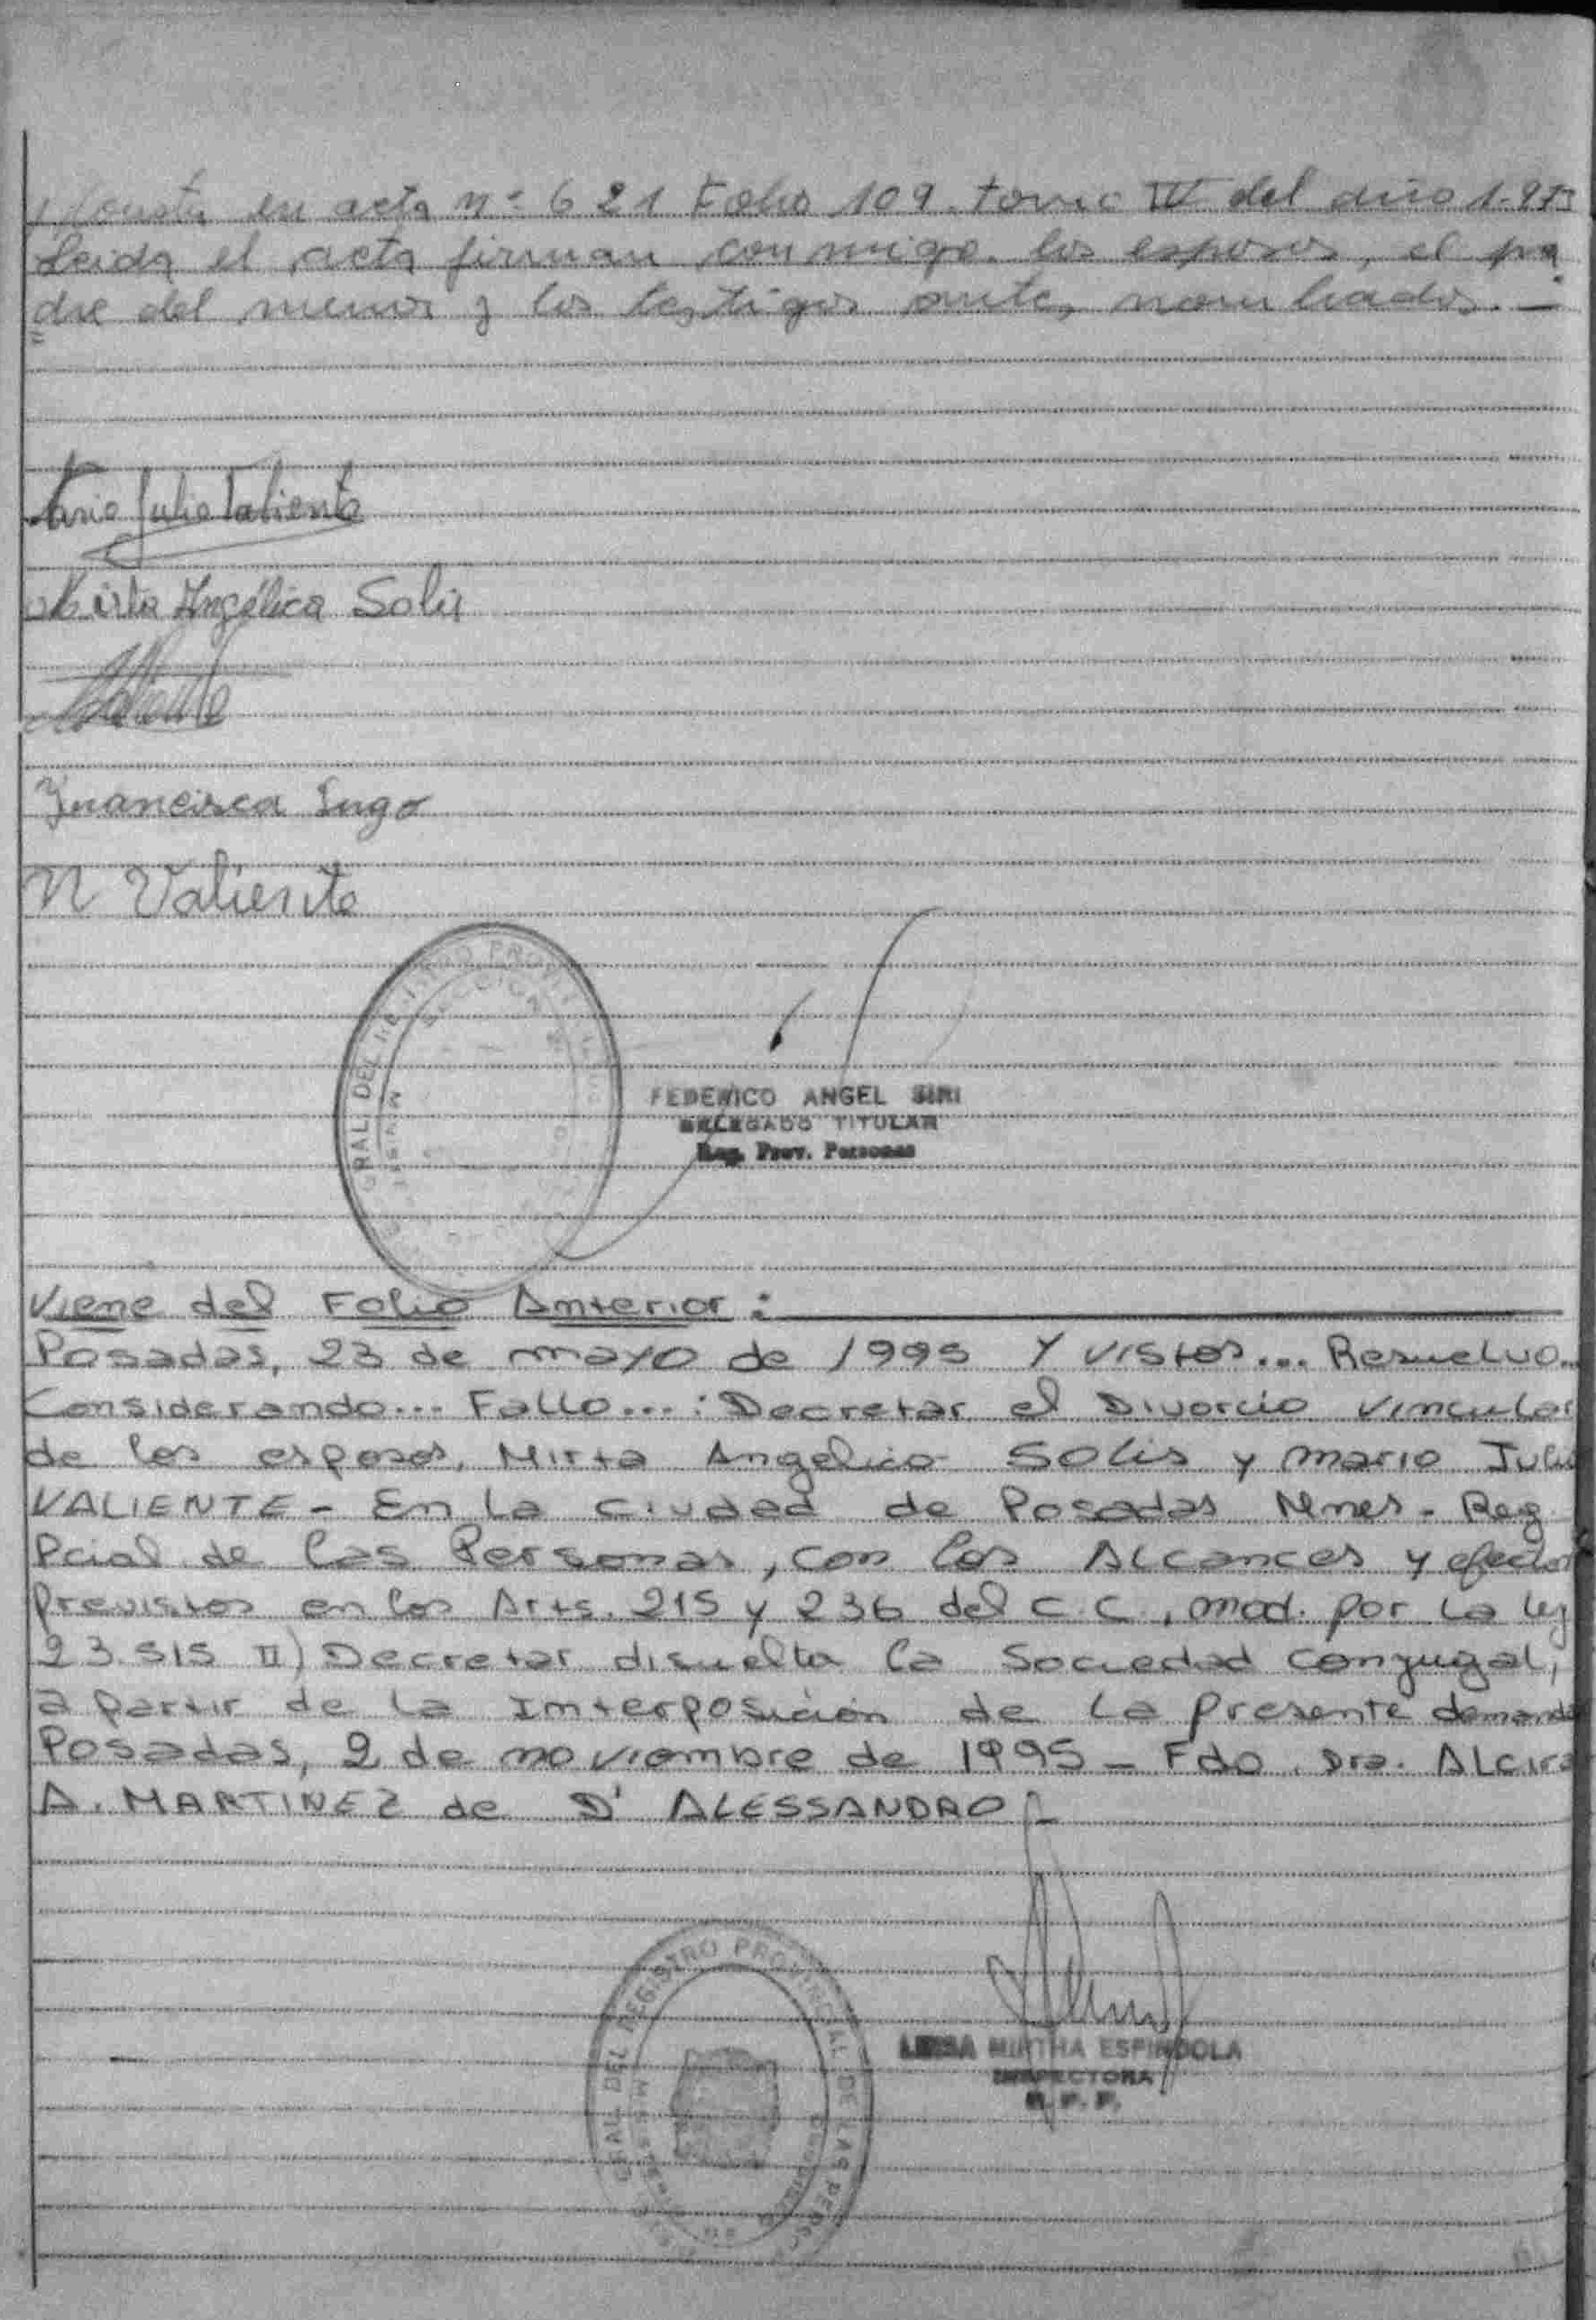 Consta en acta nº 621 Folio 109. tomo IV del año 1.97
Leida el acta firman conmigo. los esposos, el pa
dre del menor y los testigos antes nombrados. —
Mario Julio Valiente
Mirta Angélica Solis
Francisca Lugo
N Valiente
GRAL DEL REGISTRO PROV
SECCION
FEDERICO ANGEL SIRI
DELEGADO TITULAR
Reg. Prov. Personas
Viene del Folio Anterior:
Posadas, 23 de mayo de 1995 Y VISTOS... Resuelvo..
Considerando... Fallo...: Decretar el Divorcio Vincular
de los esposos, Mirta Angelica SOLIS y Mario Julio
VALIENTE - En la Ciudad de Posadas Mnes - Reg.
Pcial de las Personas, con los Alcances y efectos
previstos en los Arts. 215 y 236 del C.C., mod. por la ley
23.515 II) Decretar disuelta la Sociedad conyugal,
a partir de la Interposición de la presente demanda
Posadas, 2 de noviembre de 1995 - Fdo. Dra. Alcira
A. MARTINEZ de D' ALESSANDRO -
GRAL DEL REGISTRO PROVINCIAL DE LAS PERSO
MISIONES
LUISA MIRTHA ESPINDOLA
INSPECTORA
R. P. P.